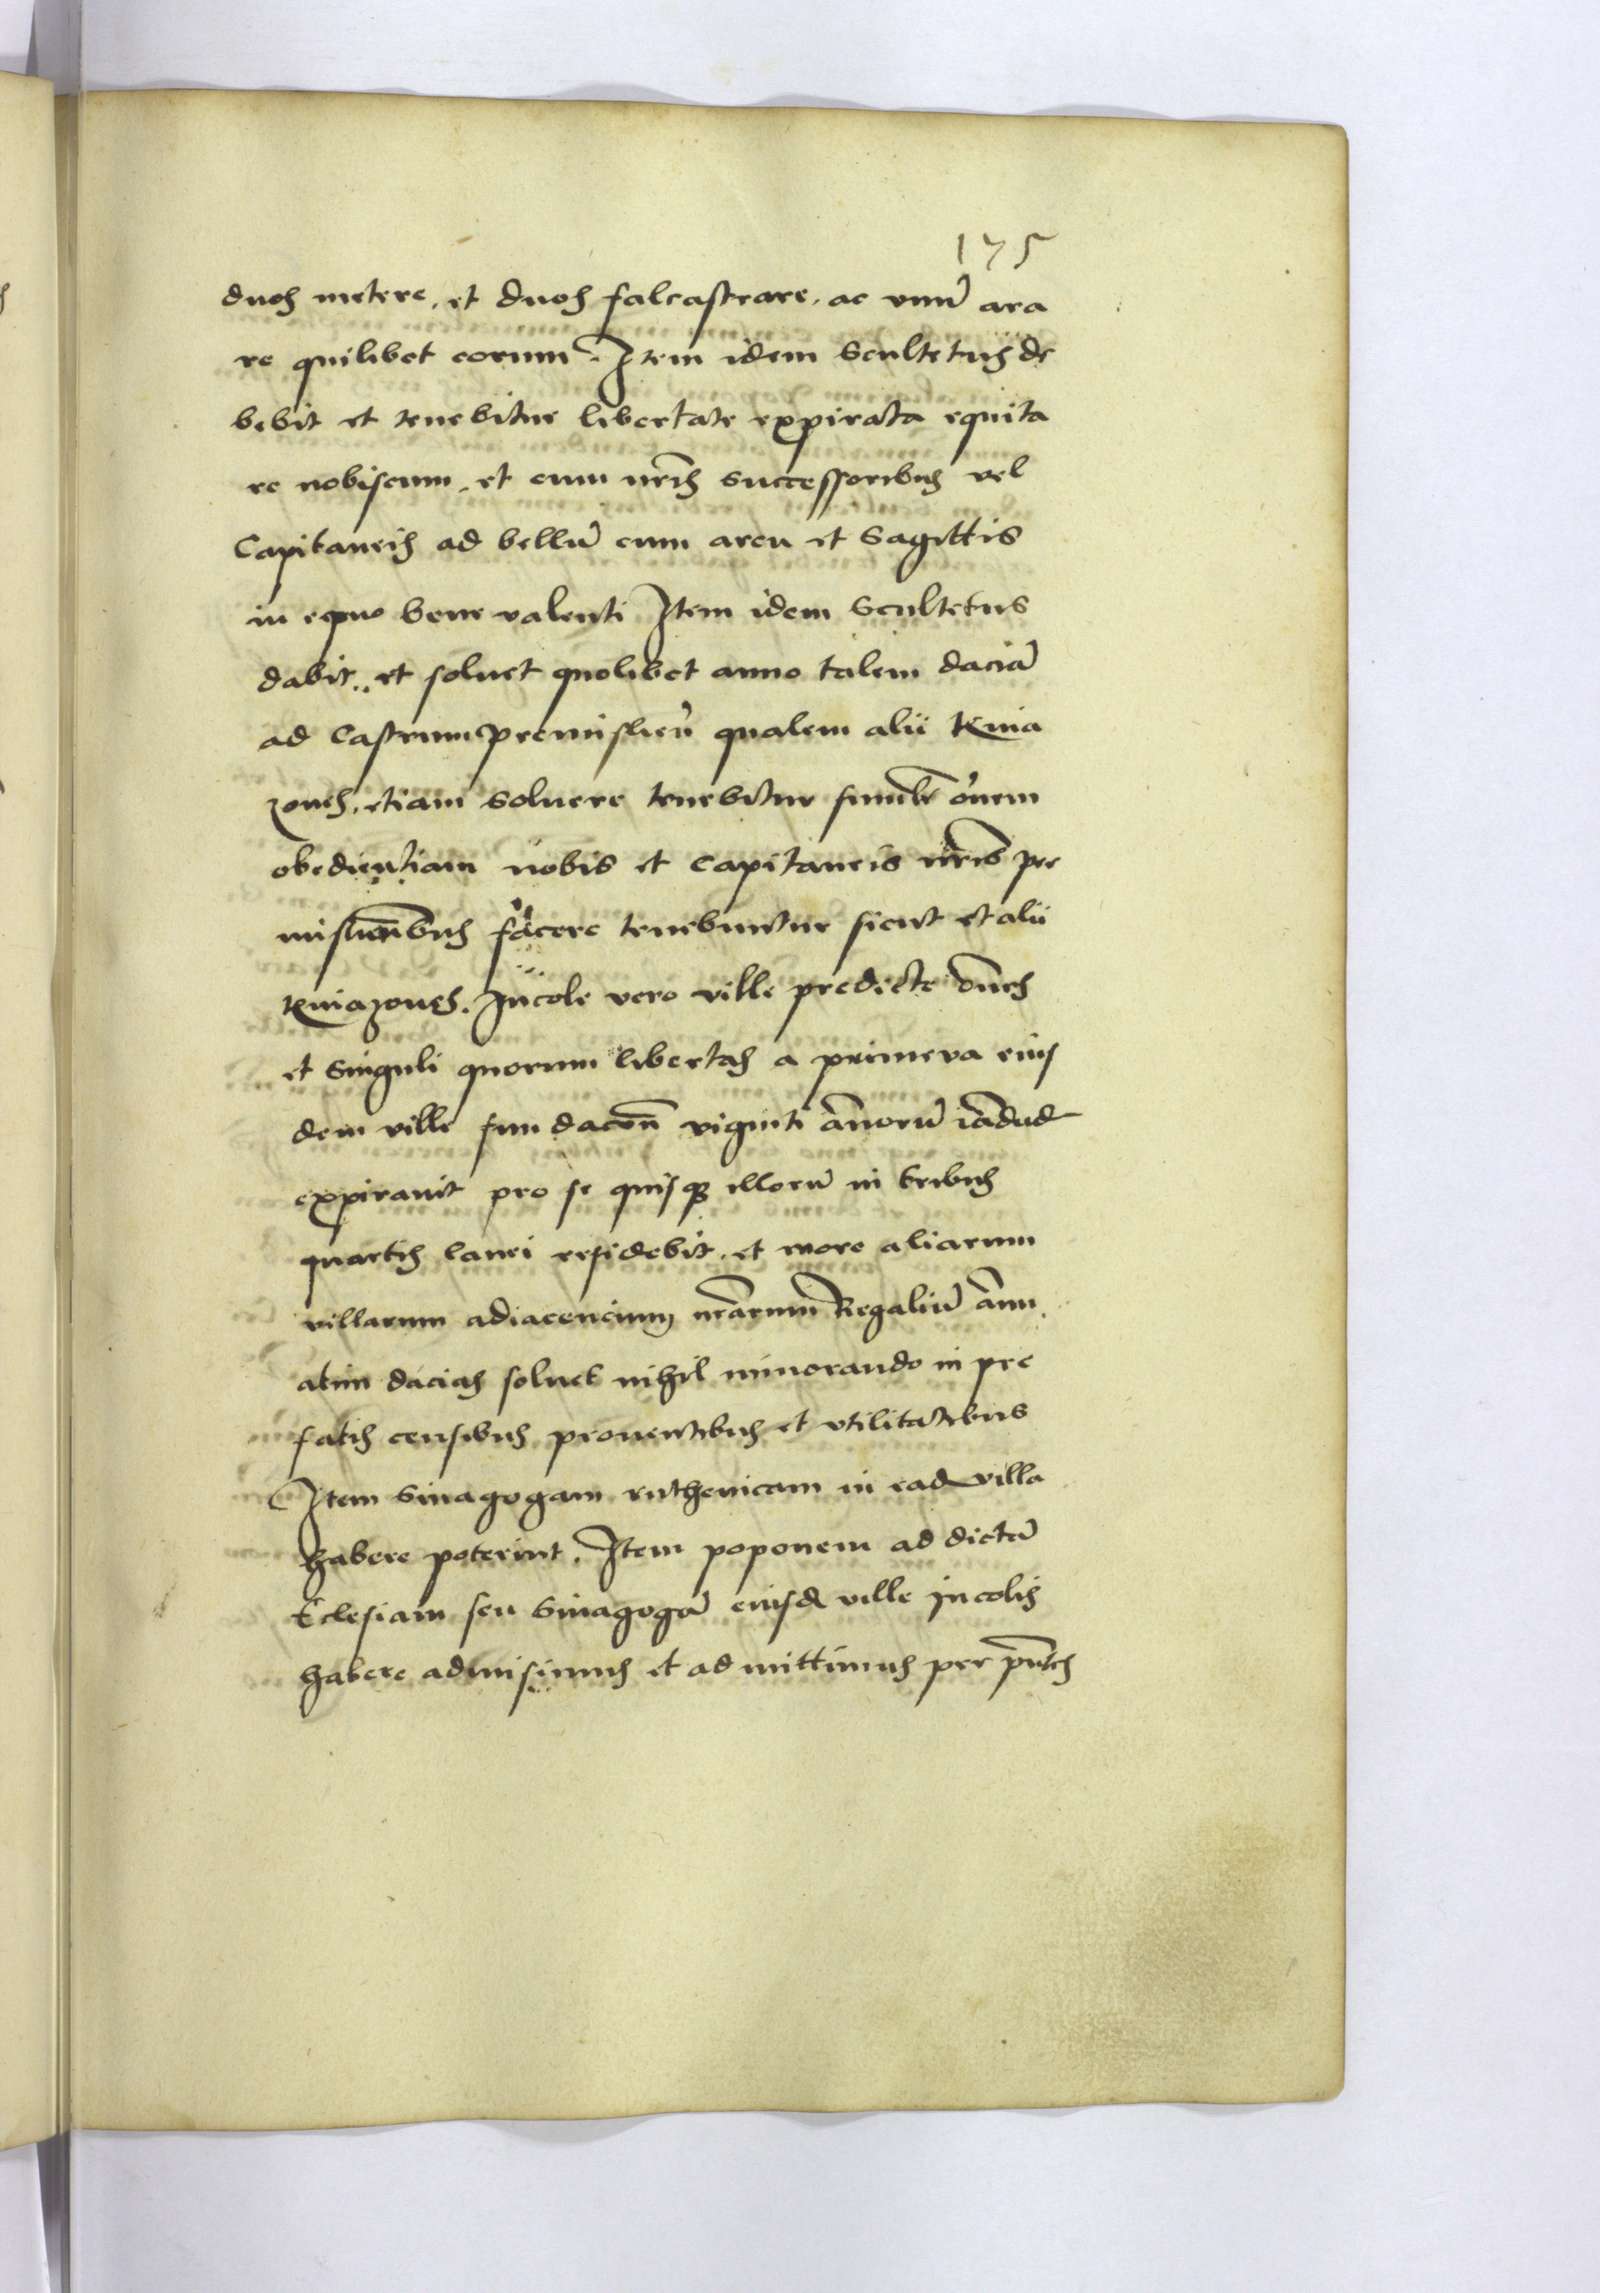 175
duos metere. et duos falcastrare. ac vnũ ara
re quilibet eorum. Item idem Scultetus de
bebit et tenebitur libertate expirata equita
re nobiscum. et cum nr̃is successoribus vel
Capitaneis ad bellũ cum arcu et sagittis
in equo bene valenti Item idem Scultetus
dabit.. et soluet quolibet anno talem daciã
ad Castrum premislien̄ qualem alii knia
zones. etiam soluere tenebitur simulr̃ om̃em
obedientiam nobis et capitaneis nr̃is pre
mislien̄bus facere tenebuntur sicut et alii
kniazones. Incole vero ville predicte om̃es
et singuli quorum libertas a primeva eius
dem ville fundacõn viginti añorũ iãdud
expirauit pro se quisq illorũ in tribus
quartis lanei residebit. et more aliarum
villarum adiacencium nr̃arum Regaliũ añu
atim dacias soluet nihil minorando in pre
fatis censibus prouentibus et vtilitatibus
Item Sinagogam ruthenicam in ead villa
habere poterint. Item poponem ad dictã
Eclesiam seu Sinagogã eiusd ville incolis
habere admisimus et ad mittimus per pñtes